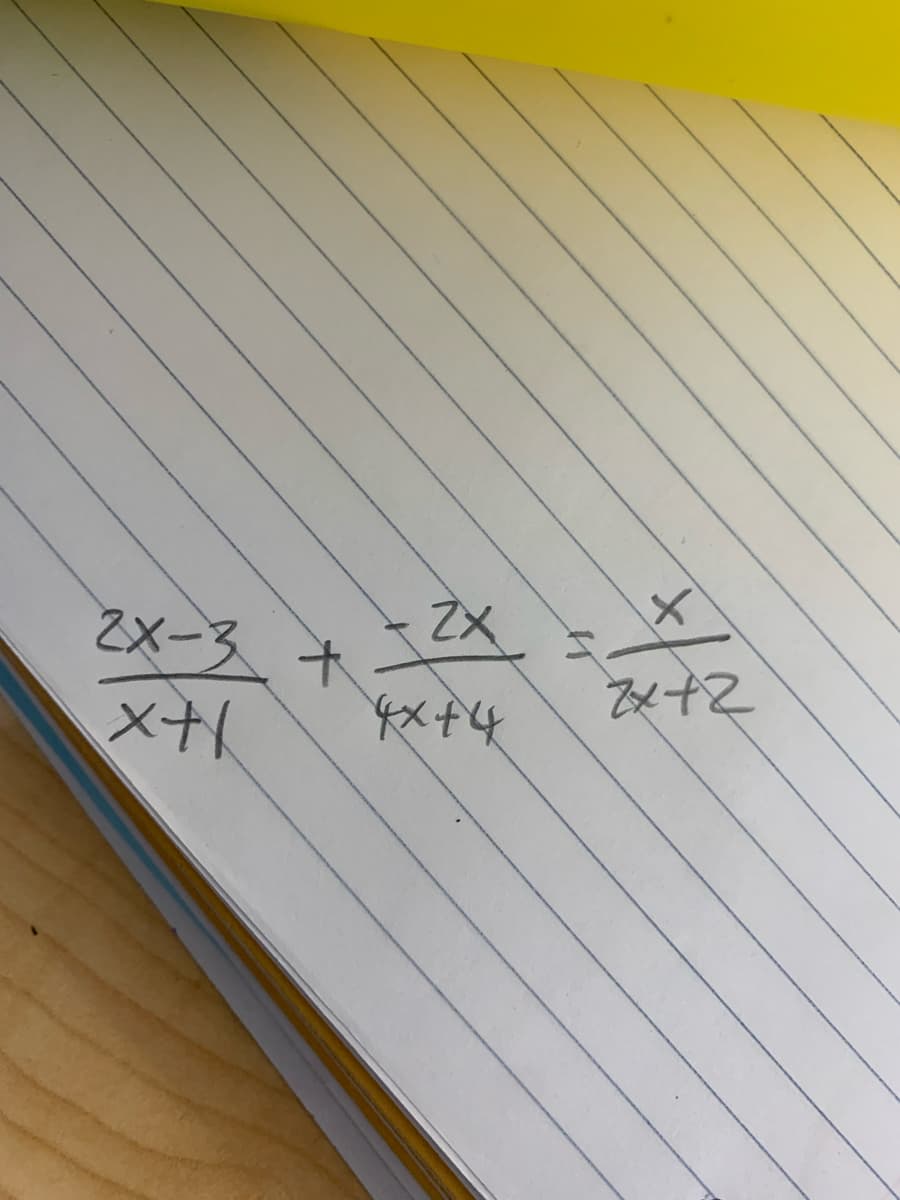 2x-3/x+1 + -2x/4x+4 = x/2x+2